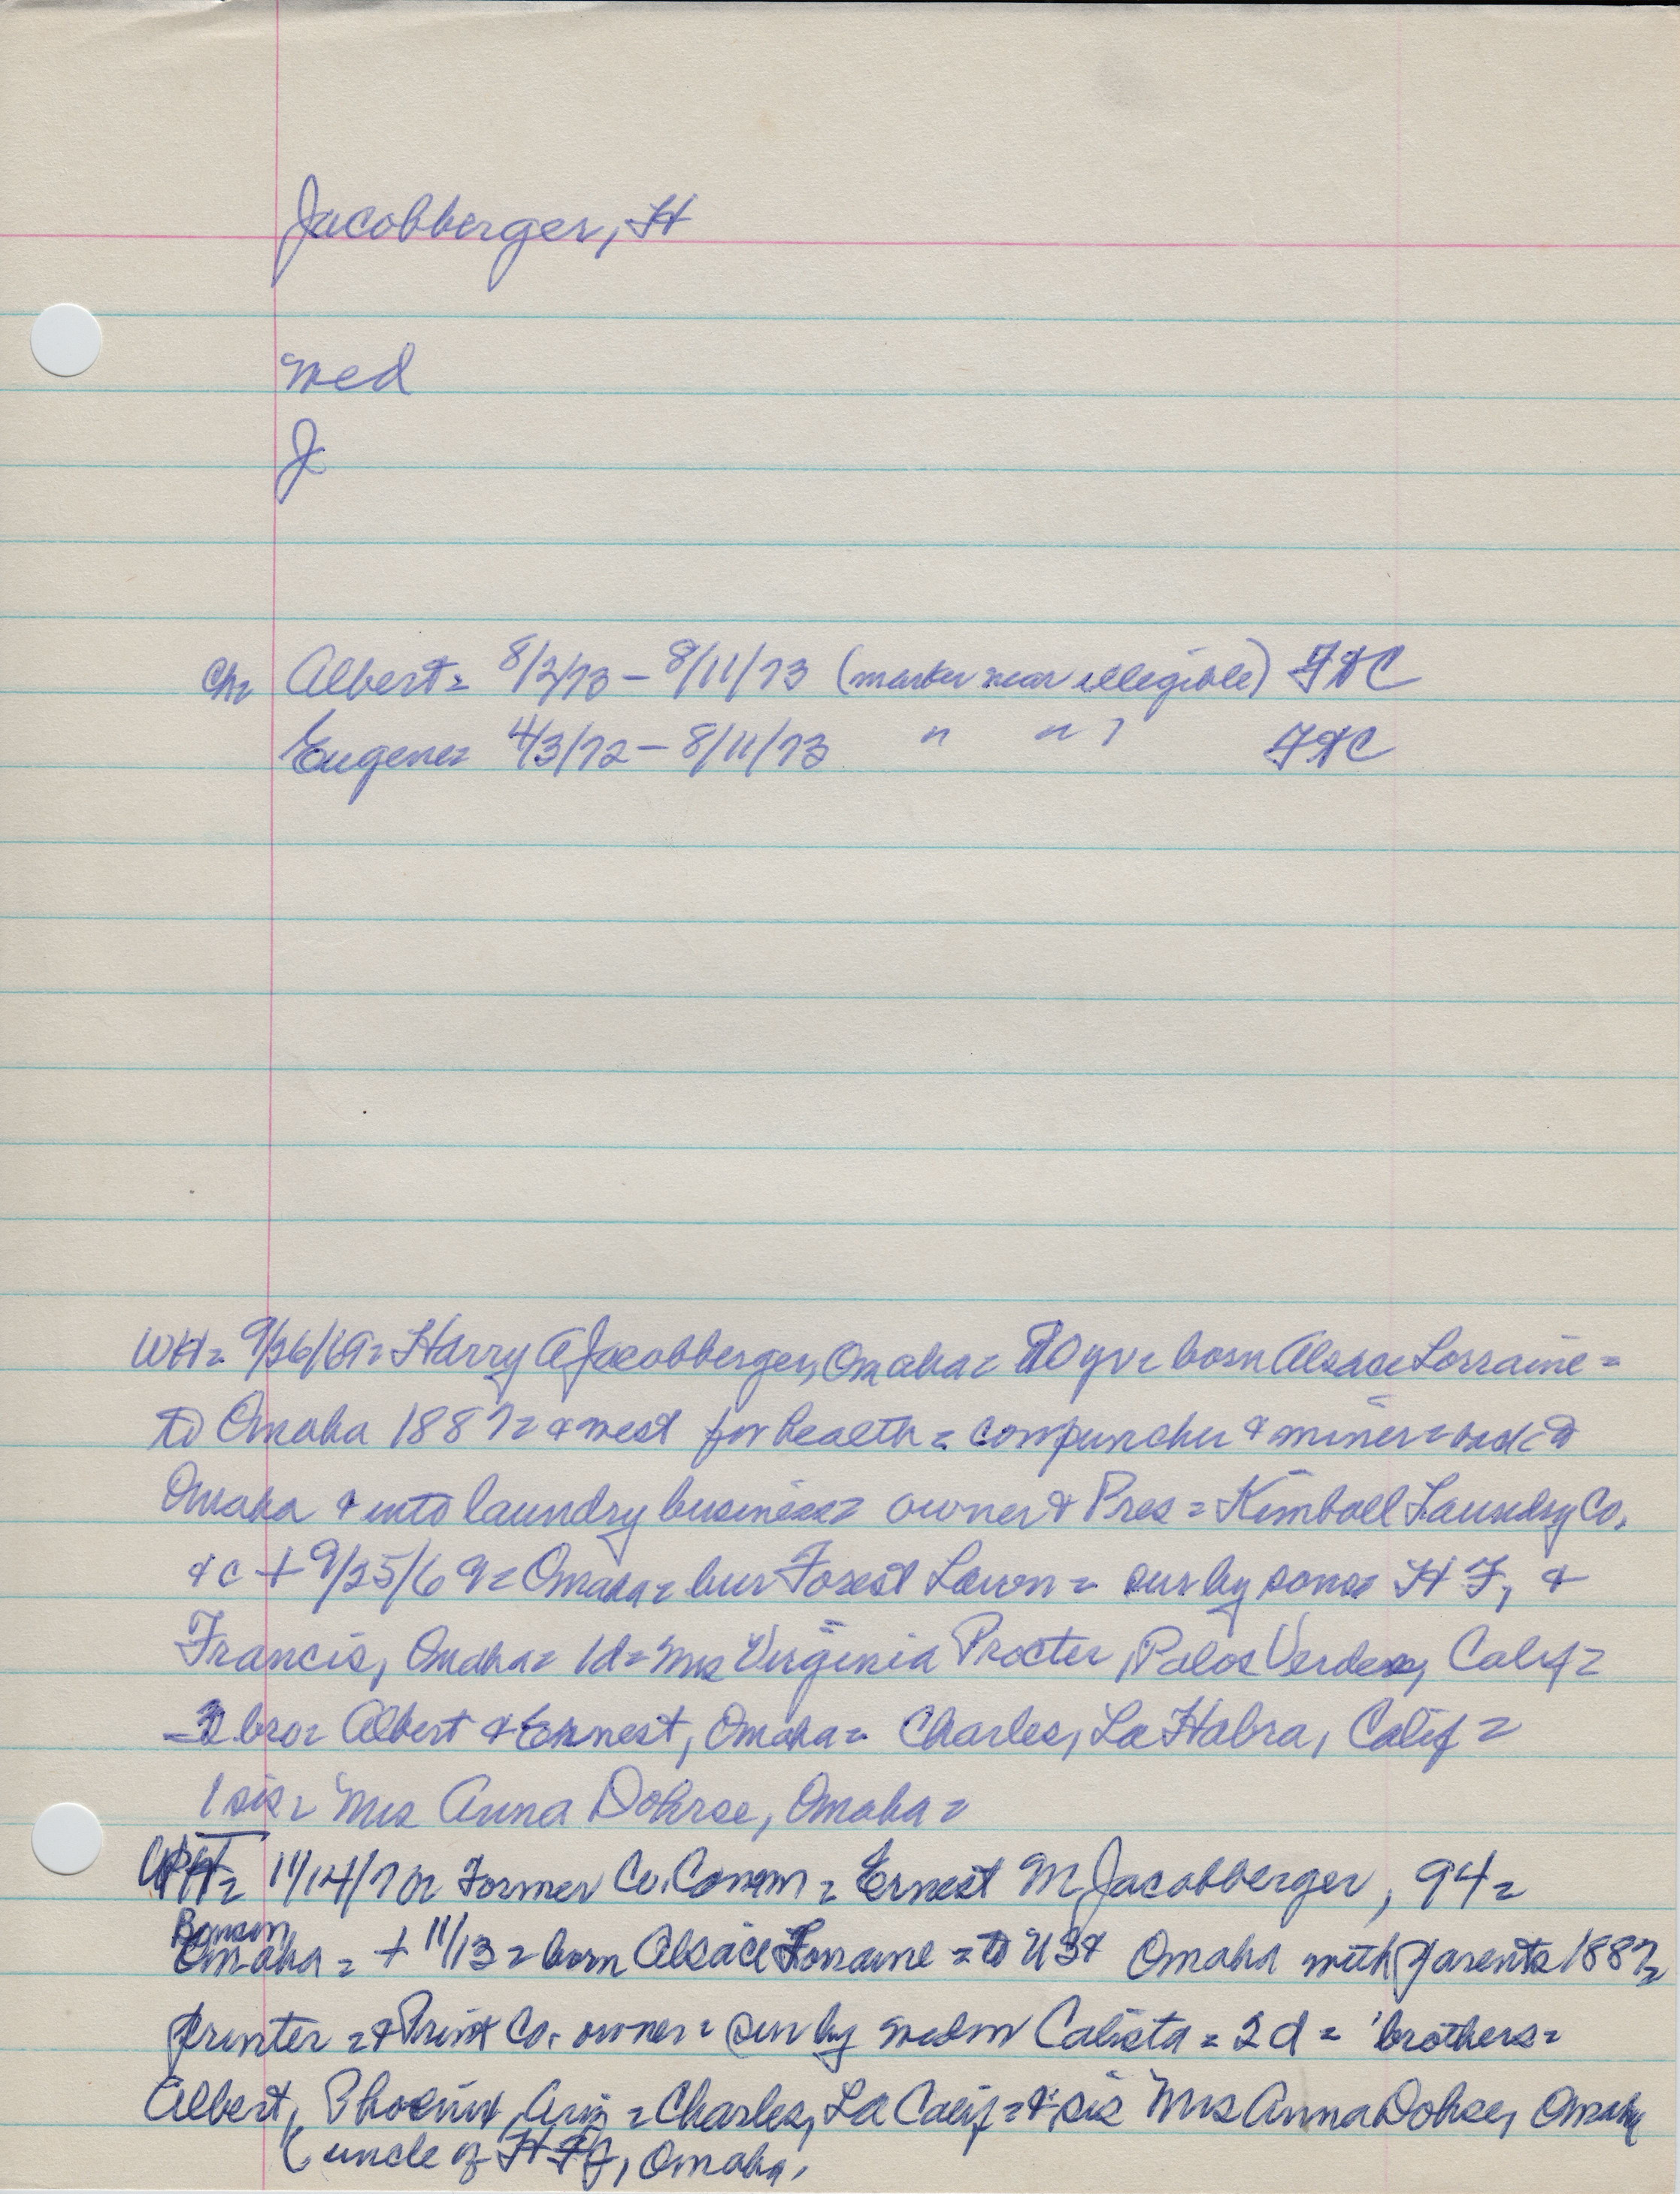 Jacobberger, H
med
J
Ch= Albert= 8/2/73 - 8/11/73 (marker near illegible) FHC
Eugene= 4/3/72 - 8/11/73 " " ? FHC
WH= 9/26/69= Harry A Jacobberger, Omaha= 90 yr= born Alsace Lorraine=
to Omaha 1887= & west for health= cowpuncher & miner= back to
Omaha & into laundry business= owner & Pres= Kimball Laundry Co.
&c + 9/25/69= Omaha= bur Forest Lawn= sur by sons= H F, &
Francis, Omaha= 1d= Mrs Virginia Procter, Palos Verdes, Calif=
3 bro= Albert & Ernest, Omaha= Charles, La Habra, Calif=
1 sis= Mrs Anna Dohrse, Omaha=
11/14/7 Former Co. Comm= Ernest M Jacobberger, 94=
Benson
Omaha= + 11/13= born Alsace Lorraine= to US & Omaha with parents 1887=
printer= & Print Co. owner= sur by widow Calista= 2d= brothers=
Albert, Phoenix, Ariz= Charles, La Calif= & sis Mrs Anna Dohse, Omaha
(uncle of H F J, Omaha,